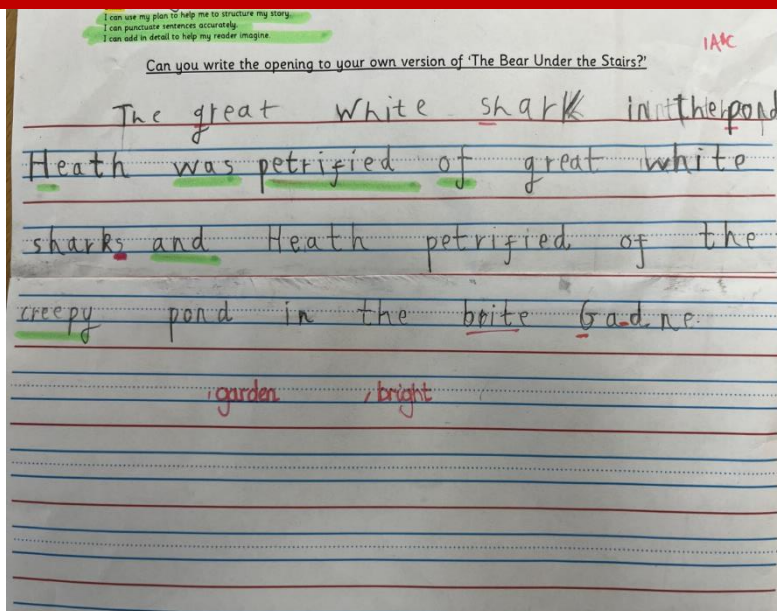 I can use my plan to help me to structure my story.
I can punctuate sentences accurately.
I can add in detail to help my reader imagine.
1A&C
Can you write the opening to your own version of 'The Bear Under the Stairs?'
The great white shark in the pond
Heath was petrified of great white
sharks and Heath petrified of the
creepy pond in the brite Gadne.
garden bright